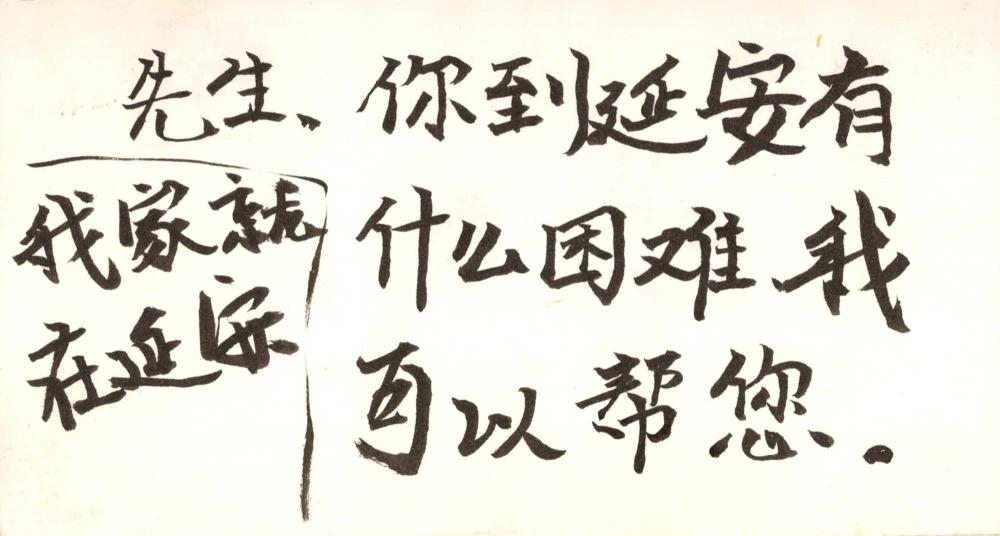 先生、你到延安有
什么困难，我
可以帮您.
我家就
在延安